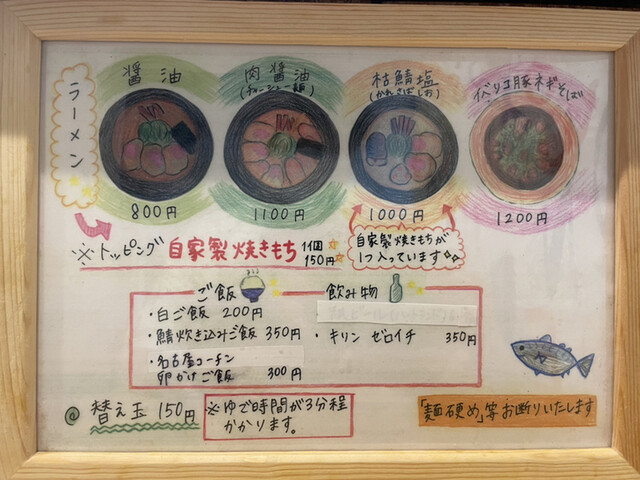 ラーメン
醤油
800円
肉醤油
(チャーシュー麺)
1100円
枯鯖塩
(かれさばしお)
1000円
イベリコ豚ネギそば
1200円
※トッピング 自家製焼きもち 1個 150円
自家製焼きもちが
1つ入っています
ご飯
・白ご飯 200円
・鯖炊き込みご飯 350円
・名古屋コーチン
卵かけご飯 300円
飲み物
・キリン ゼロイチ 350円
◎替え玉 150円
※ゆで時間が3分程
かかります。
「麺硬め」等お断りいたします